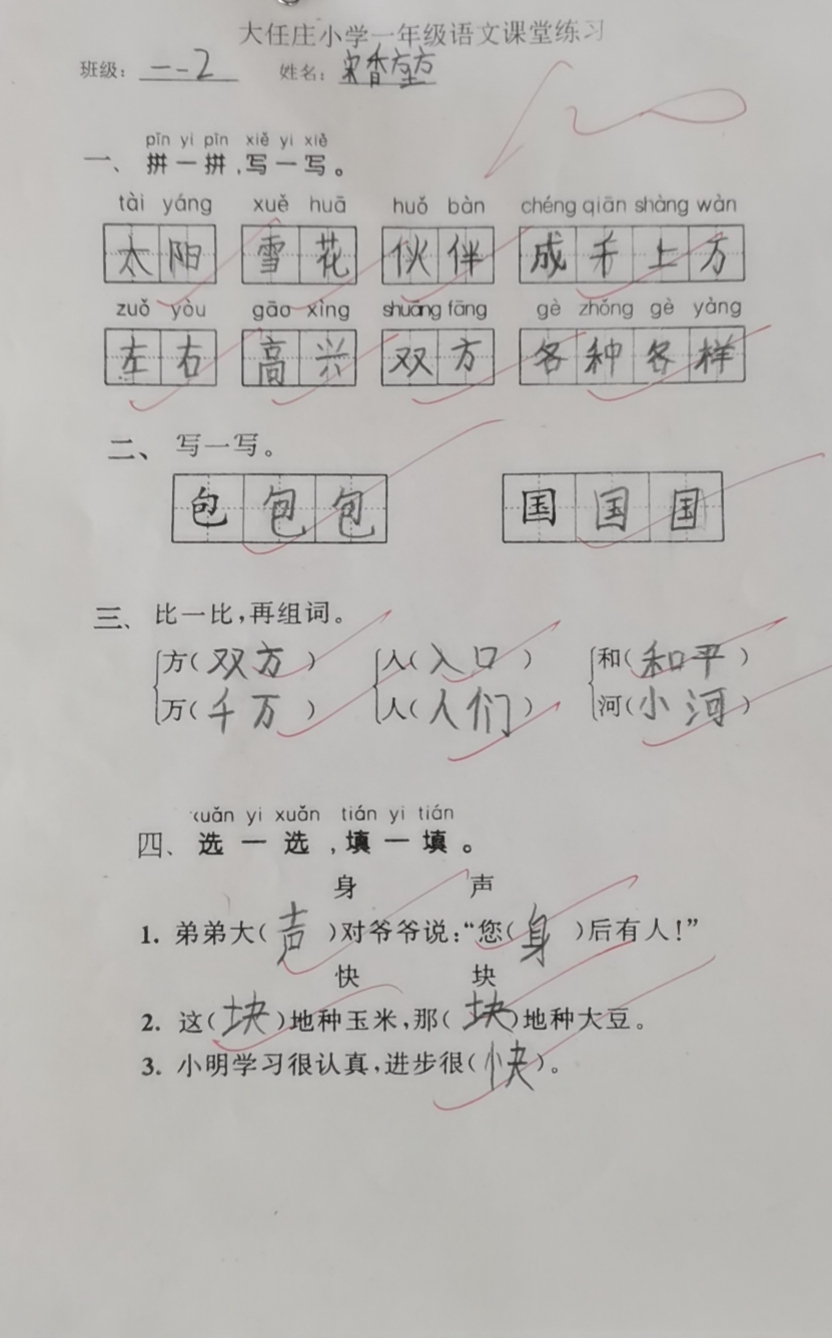 大任庄小学一年级语文课堂练习
班级：一-2 姓名：
pīn yi pīn xiě yi xiě
一、拼一拼，写一写。
tài yáng xuě huā huǒ bàn chéng qiān shàng wàn
太阳 雪花 伙伴 成千上万
zuǒ yòu gāo xìng shuāng fāng gè zhǒng gè yàng
左右 高兴 双方 各种各样
二、写一写。
包包包 国国国
三、比一比，再组词。
方（双方） 入（入口） 和（和平）
万（千万） 人（人们） 河（小河）
xuǎn yi xuǎn tián yi tián
四、选一选，填一填。
身 声
1. 弟弟大（声）对爷爷说：“您（身）后有人！”
快 块
2. 这（块）地种玉米，那（块）地种大豆。
3. 小明学习很认真，进步很（快）。